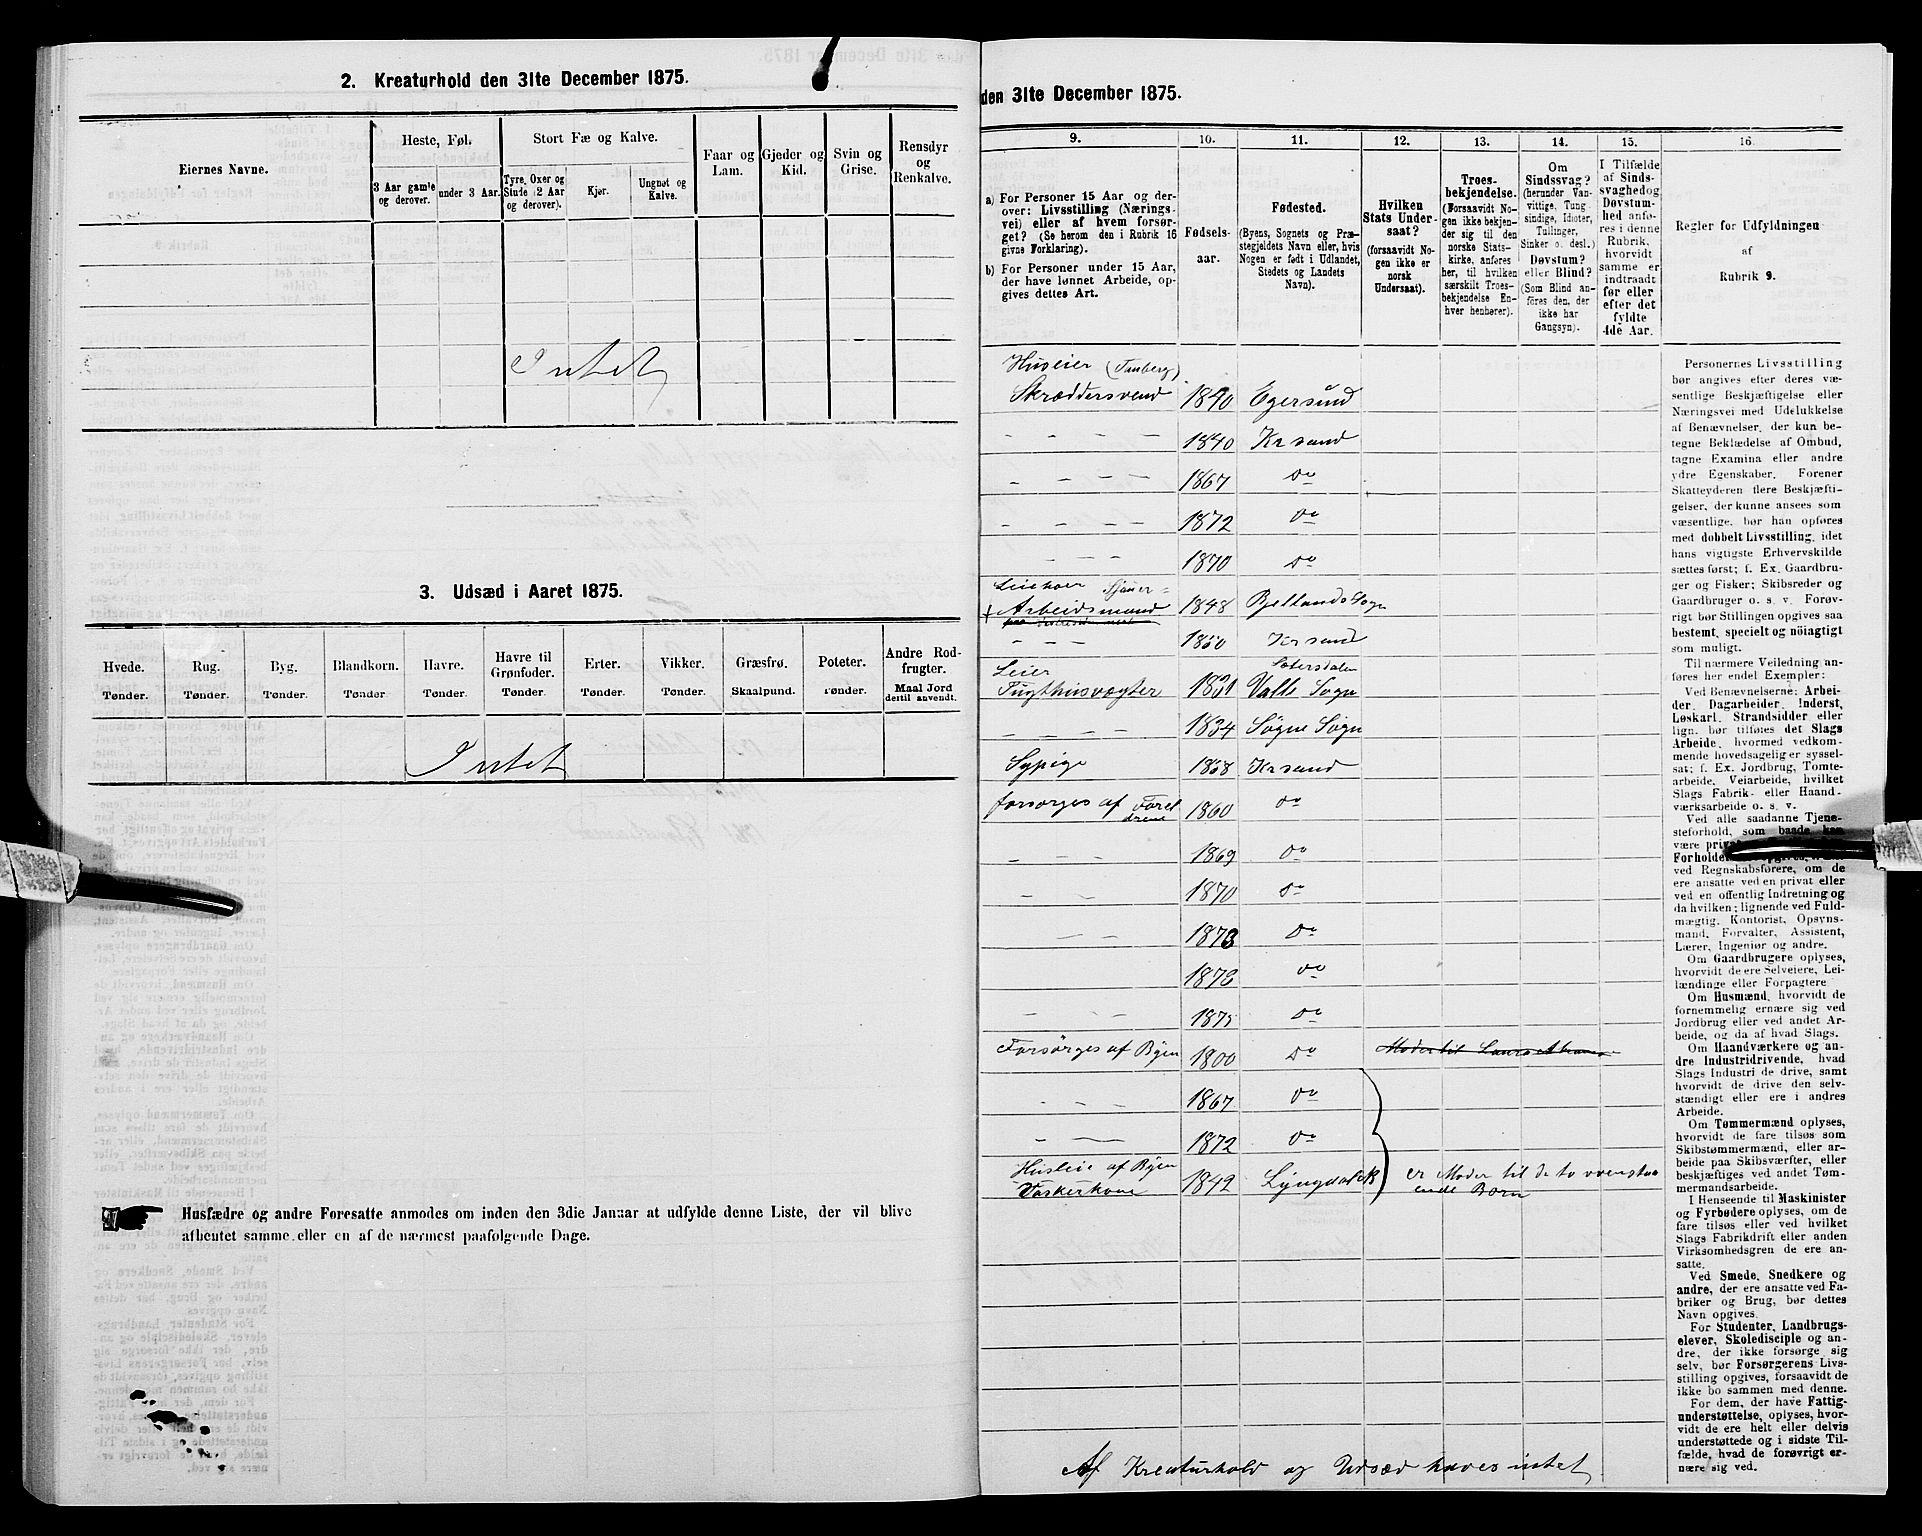 2. Kreaturhold den 31te December 1875.
Eiernes Navne.
Heste, Føl.
3 Aar gamle og derover.
under 3 Aar.
Stort Fæ og Kalve.
Tyre, Oxer og Stude (2 Aar og derover).
Kjør.
Ungnøt og Kalve.
Faar og Lam.
Gjeder og Kid.
Svin og Grise.
Rensdyr og Renkalve.
Intet
3. Udsæd i Aaret 1875.
Hvede. Tønder.
Rug. Tønder.
Byg. Tønder.
Blandkorn. Tønder.
Havre. Tønder.
Havre til Grønfoder. Tønder.
Erter. Tønder.
Vikker. Tønder.
Græsfrø. Skaalpund.
Poteter. Tønder.
Andre Rodfrugter. Maal Jord dertil anvendt.
Intet
Husfædre og andre Foresatte anmodes om inden den 3die Januar at udfylde denne Liste, der vil blive
afhentet samme eller en af de nærmest paafølgende Dage.
den 31te December 1875.
9.
a) For Personer 15 Aar og derover: Livsstilling (Næringsvei) eller af hvem forsørget? (Se herom den i Rubrik 16 givne Forklaring).
b) For Personer under 15 Aar, der have lønnet Arbeide, opgives dettes Art.
10.
Fødselsaar.
11.
Fødested.
(Byens, Sognets og Præstegjeldets Navn eller, hvis Nogen er født i Udlandet, Stedets og Landets Navn).
12.
Hvilken Stats Undersaat?
(forsaavidt Nogen ikke er norsk Undersaat).
13.
Troesbekjendelse.
(Forsaavidt Nogen ikke bekjender sig til den norske Statskirke, anføres her, til hvilken særskilt Troesbekjendelse Enhver henhører).
14.
Om Sindssvag? (herunder Vanvittige, Tungsindige, Idioter, Tullinger, Sinker o. desl.) Døvstum? eller Blind? (Som Blind anføres den, der ikke har Gangsyn).
15.
I Tilfælde af Sindssvaghed og Døvstumhed anføres i denne Rubrik, hvorvidt samme er indtraadt før eller efter det fyldte 4de Aar.
16.
Regler for Udfyldningen af Rubrik 9.
Huseier (Tanberg)
Skræddersvend 1840 Egersund
– – – – 1840 Krsand
– – – – 1867 do
– – – – 1872 do
– – – – 1870 do
Leieboer Sjouer=
+ Arbeidsmand 1848 Bjellands Sogn
– – – 1850 Krsand
Leier Sætersdalen
Tugthusvægter 1831 Valle Sogn
– – – – 1834 Søgne Sogn
Sypige 1858 Krsand
forsørges af Forel
drene 1860 do
– – – 1869 do
– – – 1870 do
– – – 1873 do
– – – 1878 do
– – – 1875 do
Forsørges af Byen 1800 do Moder til
– – – 1867 do
– – – 1872 do
Husleie af Byen
Vaskerkone 1842 Lyngdal er Moder til de to ovenstaa
ende Børn
Personernes Livsstilling
bør angives efter deres væ-
sentlige Beskjæftigelse eller
Næringsvei med Udelukkelse
af Benævnelser, der kun be-
tegne Beklædelse af Ombud,
tagne Examina eller andre
ydre Egenskaber. Forener
Skatteyderen flere Beskjæfti-
gelser, der kunne ansees som
væsentlige, bør han opføres
med dobbelt Livsstilling, idet
hans vigtigste Erhvervskilde
sættes først; f. Ex. Gaardbru-
ger og Fisker; Skibsreder og
Gaardbruger o. s. v. Forøv-
rigt bør Stillingen opgives saa
bestemt, specielt og nöiagtigt
som muligt.
Til nærmere Veiledning an-
føres her endel Exempler:
Ved Benævnelserne: Arbei-
der, Dagarbeider, Inderst,
Løskarl, Strandsidder eller
lign. bør tilføies det Slags
Arbeide, hvormed vedkom-
mende hovedsagelig er syssel-
sat; f. Ex. Jordbrug, Tomte-
arbeide, Veiarbeide, hvilket
Slags Fabrik- eller Haand-
værksarbeide o. s. v.
Ved alle saadanne Tjene-
steforhold, som baade kan
være
Forholdet
ved Regnskabsførere, om de
ere ansatte ved en privat eller
ved en offentlig Indretning og
da hvilken; lignende ved Fuld-
mægtig, Kontorist, Opsyns-
mand, Forvalter, Assistent,
Lærer, Ingeniør og andre.
Om Gaardbrugere oplyses,
hvorvidt de ere Selveiere, Lei-
lændinge eller Forpagtere
Om Husmænd, hvorvidt de
fornemmelig ernære sig ved
Jordbrug eller ved andet Ar-
beide, og da af hvad Slags.
Om Haandværkere og an-
dre Industridrivende, hvad
Slags Industri de drive, samt
hvorvidt de drive den selv-
stændigt eller ere i andres
Arbeide.
Om Tømmermænd oplyses,
hvorvidt de fare tilsøs som
Skibstømmermænd, eller ar-
beide paa Skibsværfter, eller
beskjæftiges ved andet Tøm-
mermandsarbeide.
I Henseende til Maskinister
og Fyrbødere oplyses, om de
fare tilsøs eller ved hvilket
Slags Fabrikdrift eller anden
Virksomhedsgren de ere an-
satte.
Ved Smede, Snedkere og
andre, der ere ansatte ved Fa-
briker og Brug, bør dettes
Navn opgives.
For Studenter, Landbrugs-
elever, Skoledisciple og an-
dre, der ikke forsørge sig
selv, bør Forsørgerens Livs-
stilling opgives, forsaavidt de
ikke bo sammen med denne.
For dem, der have Fattig-
understøttelse, oplyses, hvor-
vidt de ere helt eller delvis
understøttede og i sidste Til-
fælde, hvad de forøvrigt er-
nære sig ved.
Af Kreaturhold og Udsæd haves intet